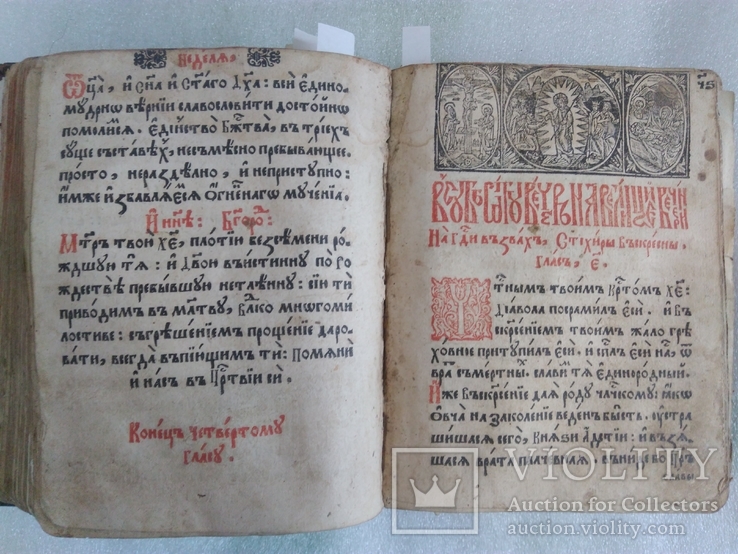 Недѣлѧ,
Ѿц҃а, и҆ Сн҃а и҆ Ст҃аго Дх҃а: вси є҆дино
мꙋдриѡ вѣрнїи славословити достойнѡ
помолимсѧ. Є҆динство Бж҃тва, въ трїехъ
сꙋще съставѣх, несъмѣсно пребывающее.
просто, нераздѣлно, и҆ неприступно:
и҆мже и҆збавлѧемсѧ ѻ҆гненнагѡ мꙋченїѧ.
И҆ нн҃ѣ: Бг҃оро:
Мт҃рь твою Хе҃, плотїю безсѣмени ро
ждшꙋю тѧ: и҆ Дв҃ою въистиннꙋ по ро
ждествѣ пребывшꙋю нетлѣннꙋ: сїю ти
приводим въ мл҃твꙋ, Вл҃ко многоми
лостиве: съгрѣшенїемъ прощенїе даро
вати, всегда въпїющим ти: Помѧни
и҆ нас въ Цр҃твїи си.
Конецъ четвертомꙋ
гласꙋ.
На Гд҃и възвахъ, Стихиры въскресны,
гласъ, е҃.
Чтⷭ҇ным твоим Крⷭ҇том Хе҃:
Дїавола посрамил єси. и҆ въ
скр҃сенїем твоим жало грѣ
ховное притꙋпил єси. и҆ сп҃сл єси на ѿ
вратъ съмертных. славим тѧ Единородный.
Иже въскресенїе даѧ родꙋ чл҃ческомꙋ: ꙗкѡ
ѻвча на заколенїе веденъ бысть. ꙋстра
шишасѧ сего, Кнѧзи Адстїи: и҆ възѧ
шасѧ врата плачевнаѧ. въниде бо Цр҃ь
VIOLITY
Auction for Collectors
auction.violity.com